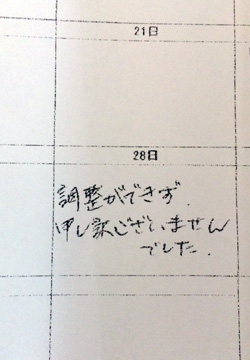 21日
28日
調整ができず.
申し訳ございません
でした.